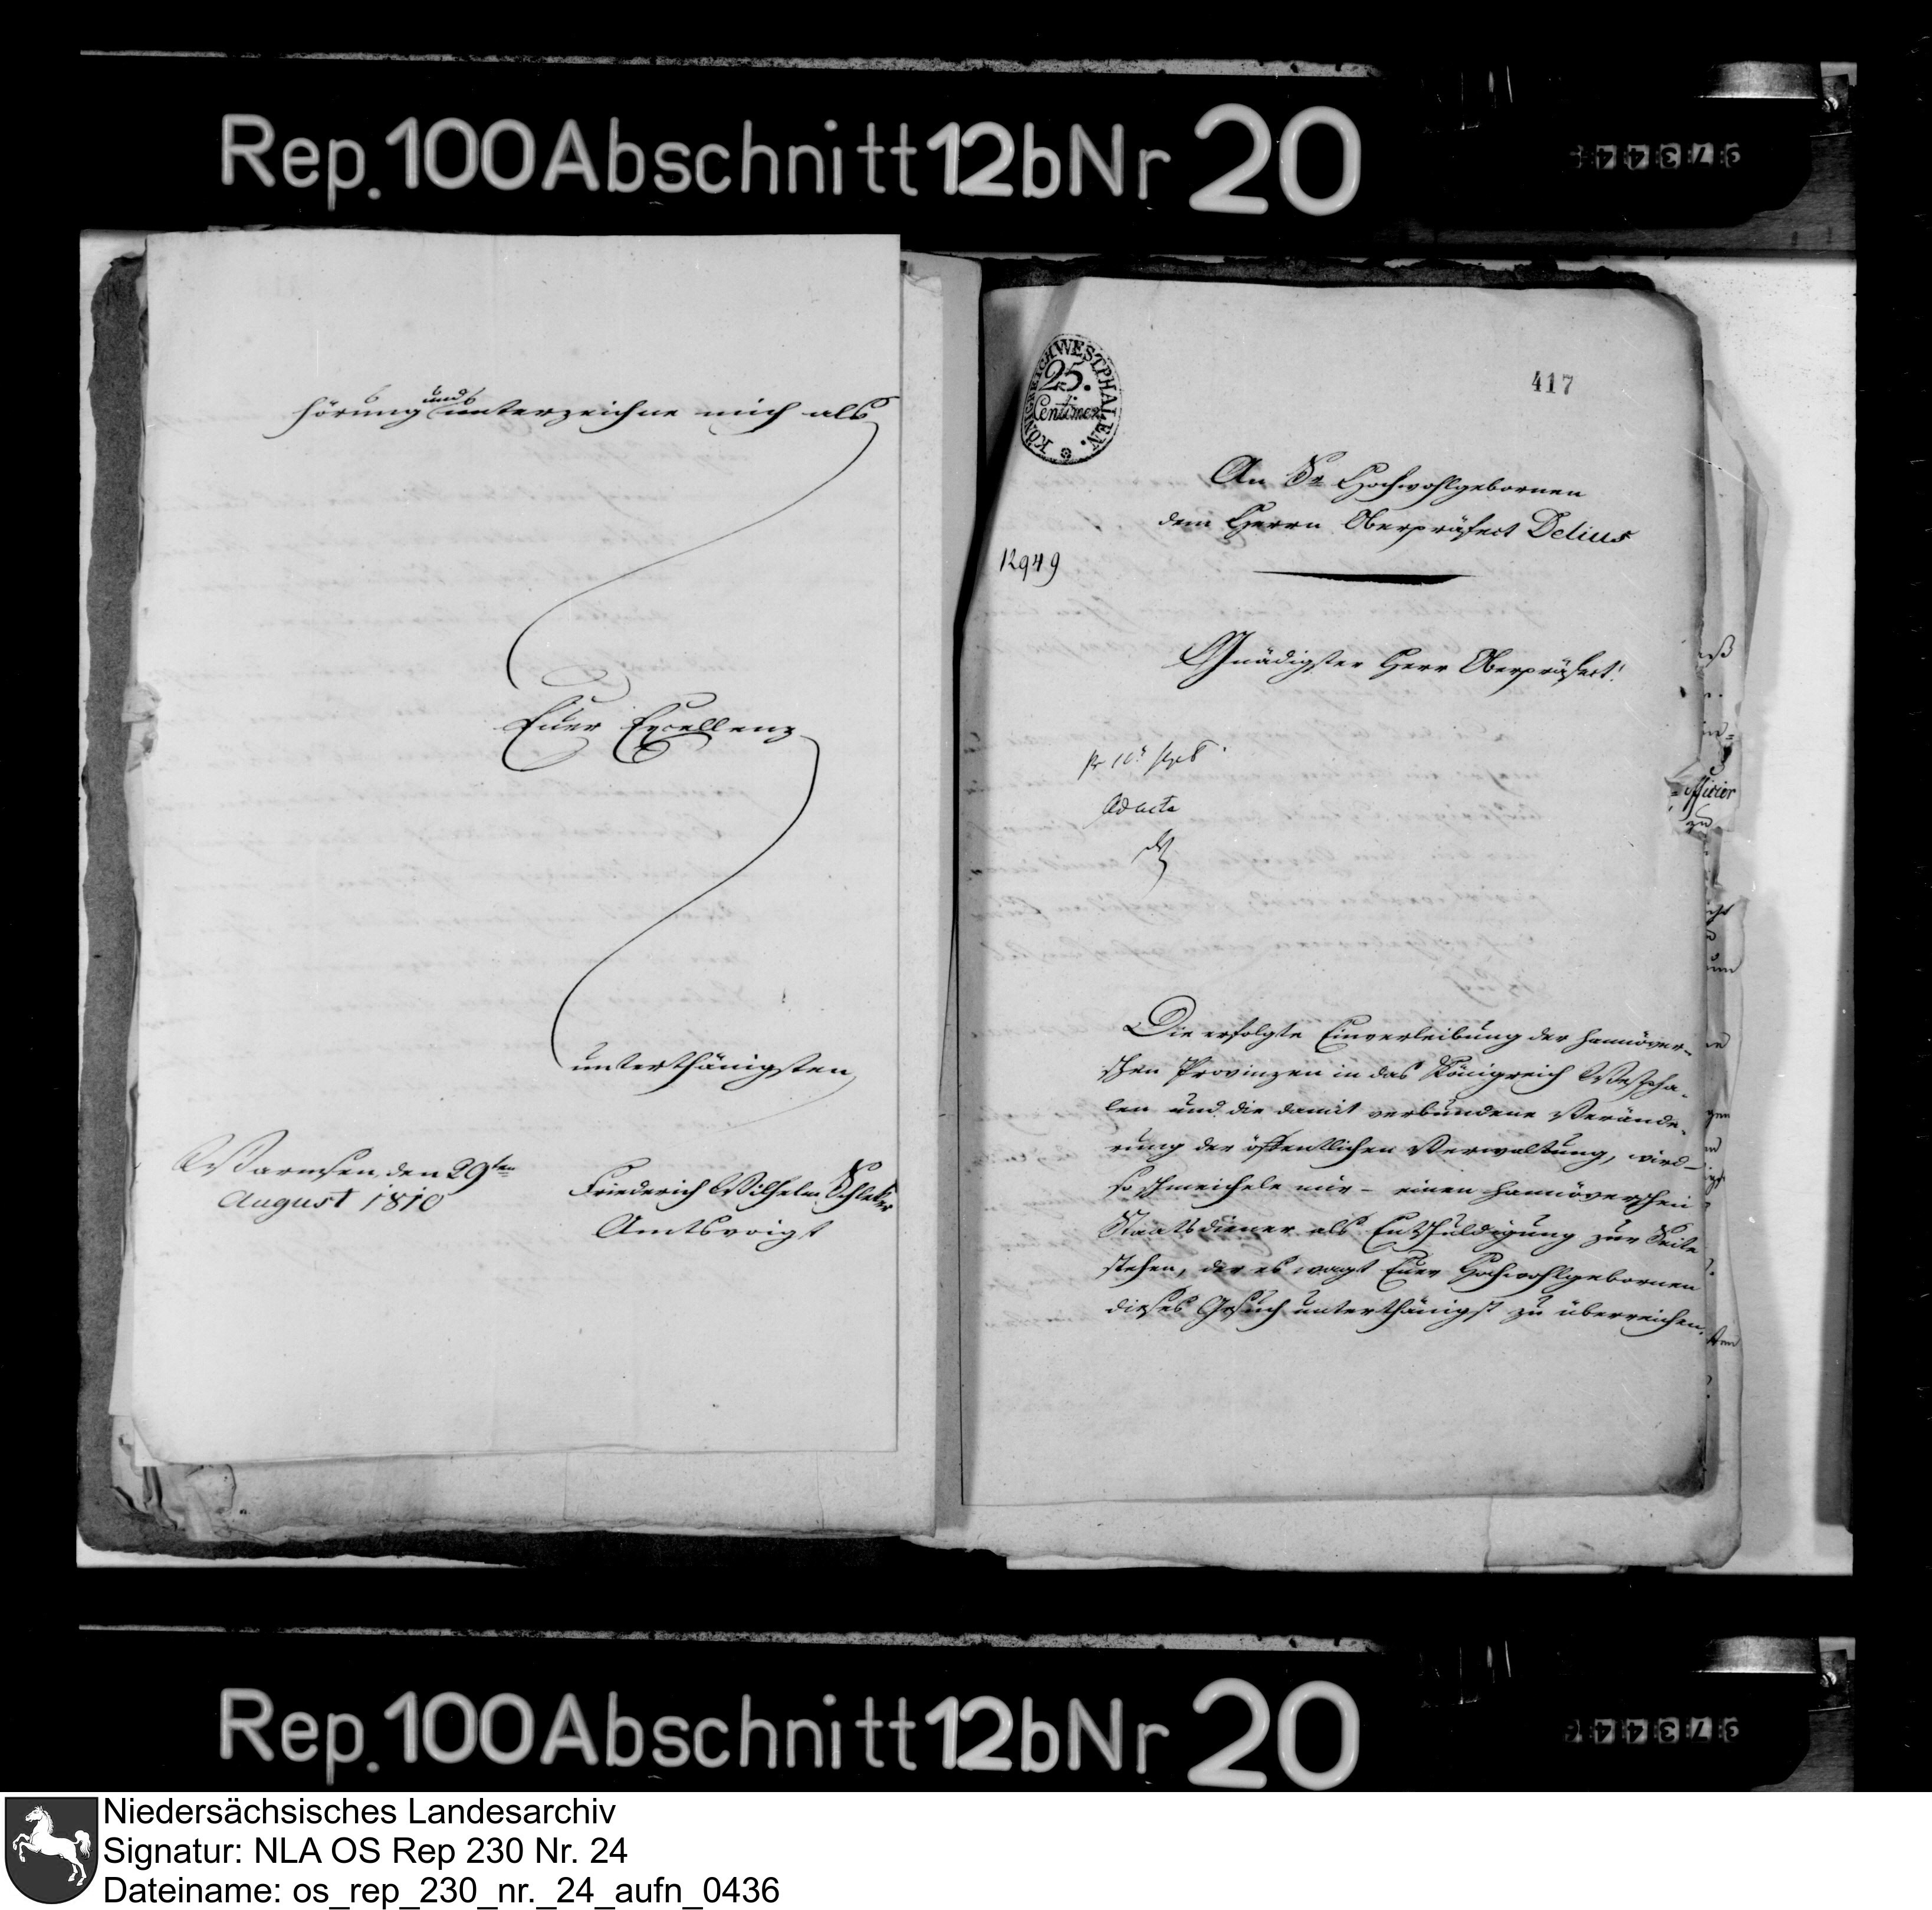 Rep. 100 Abschnitt 12b Nr 20
hörung und unterzeichne mich als
Euer Excellenz
unterthänigsten
Warmsen, den 29ten
August 1810
Friederich Wilhelm
Amtsvoigt
KÖNIGREICH WESTPHALEN.
25.
Centimes
417
An Sr Hochwohlgebornen
dem Herrn Oberpräfect Delius
12949
Gnädigster Herr Oberpräfect!
pr 10t Sept.
Ad acta
Die erfolgte Einverleibung der hannöver-
schen Provinzen in das Königreich Westpha-
len und die damit verbundene Verände-
rung der öffentlichen Verwaltung, wird –
so schmeichele mir – einen hannöverschen
Staatsdiener als Entschuldigung zur Seite
stehen, der es wagt Euer Hochwohlgebornen
dieses Gesuch unterthänigst zu überreichen.
officier
zu
Rep. 100 Abschnitt 12b Nr 20
Niedersächsisches Landesarchiv
Signatur: NLA OS Rep 230 Nr. 24
Dateiname: os_rep_230_nr._24_aufn_0436